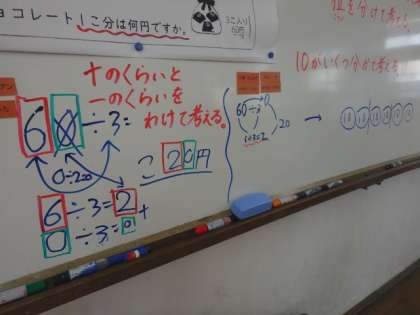 ョコレート1こ分は何円ですか。
3こ入り
60円
を分けて考える。
10がいくつ分かで考える。
十のくらいと
一のくらいを
わけて考える。
60÷3=
こ 20円
6÷3=2
0÷3=0
+
60÷3
6÷3=2
20
→
10 10 10 10 10 10